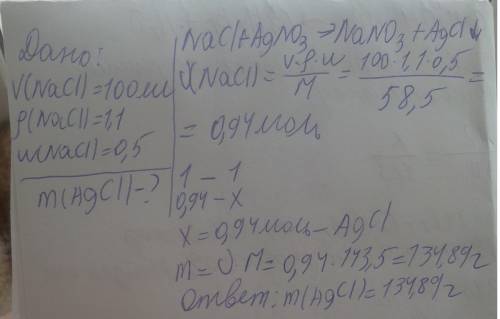 Дано:
V(NaCl)=100мл
ρ(NaCl)=1,1
w(NaCl)=0,5
m(AgCl)-?
NaCl+AgNO3→NaNO3+AgCl↓
υ(NaCl)=V·ρ·w/M=100·1,1·0,5/58,5=
=0,94моль
1-1
0,94-X
X=0,94моль-AgCl
m=υ·M=0,94·143,5=134,89г
Ответ: m(AgCl)=134,89г